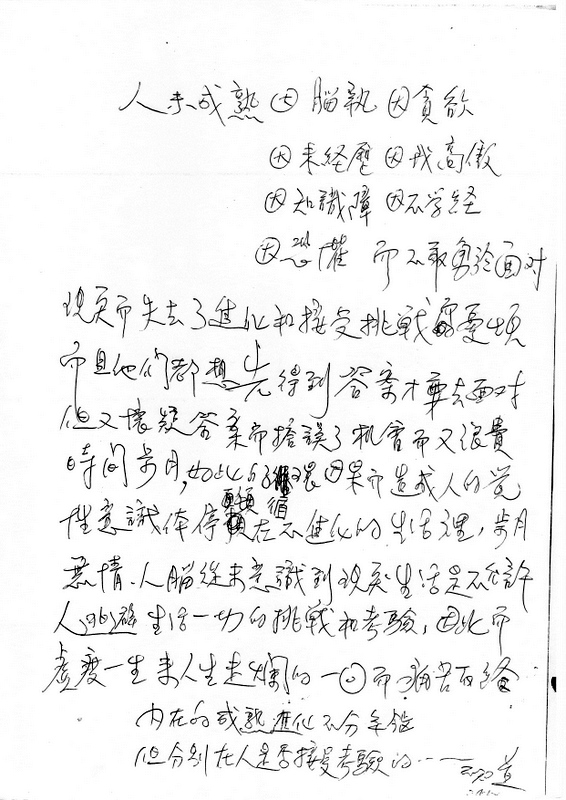 人未成熟 因脑執 因貪欲
因未経歷 因我高傲
因知識障 因不学経
因恐懼 而不敢勇於面対
現実而失去了進化和接受挑戦
而且他们都想先得到答案才要去面对
但又懐疑答案而擔誤了机会而又浪費
時間歩月, 如此的循環因果而造成人的覚
性意識体停頓在不進化的生活裡, 歩月
無情、人脑從未意識到現実生活是不允許
人逃避生活一切的挑戦和考驗, 因此而
虚度一生 来人生走 的一 而痛苦百
内在的成熟進化不分年齡
但分别在人是否接受考驗的……